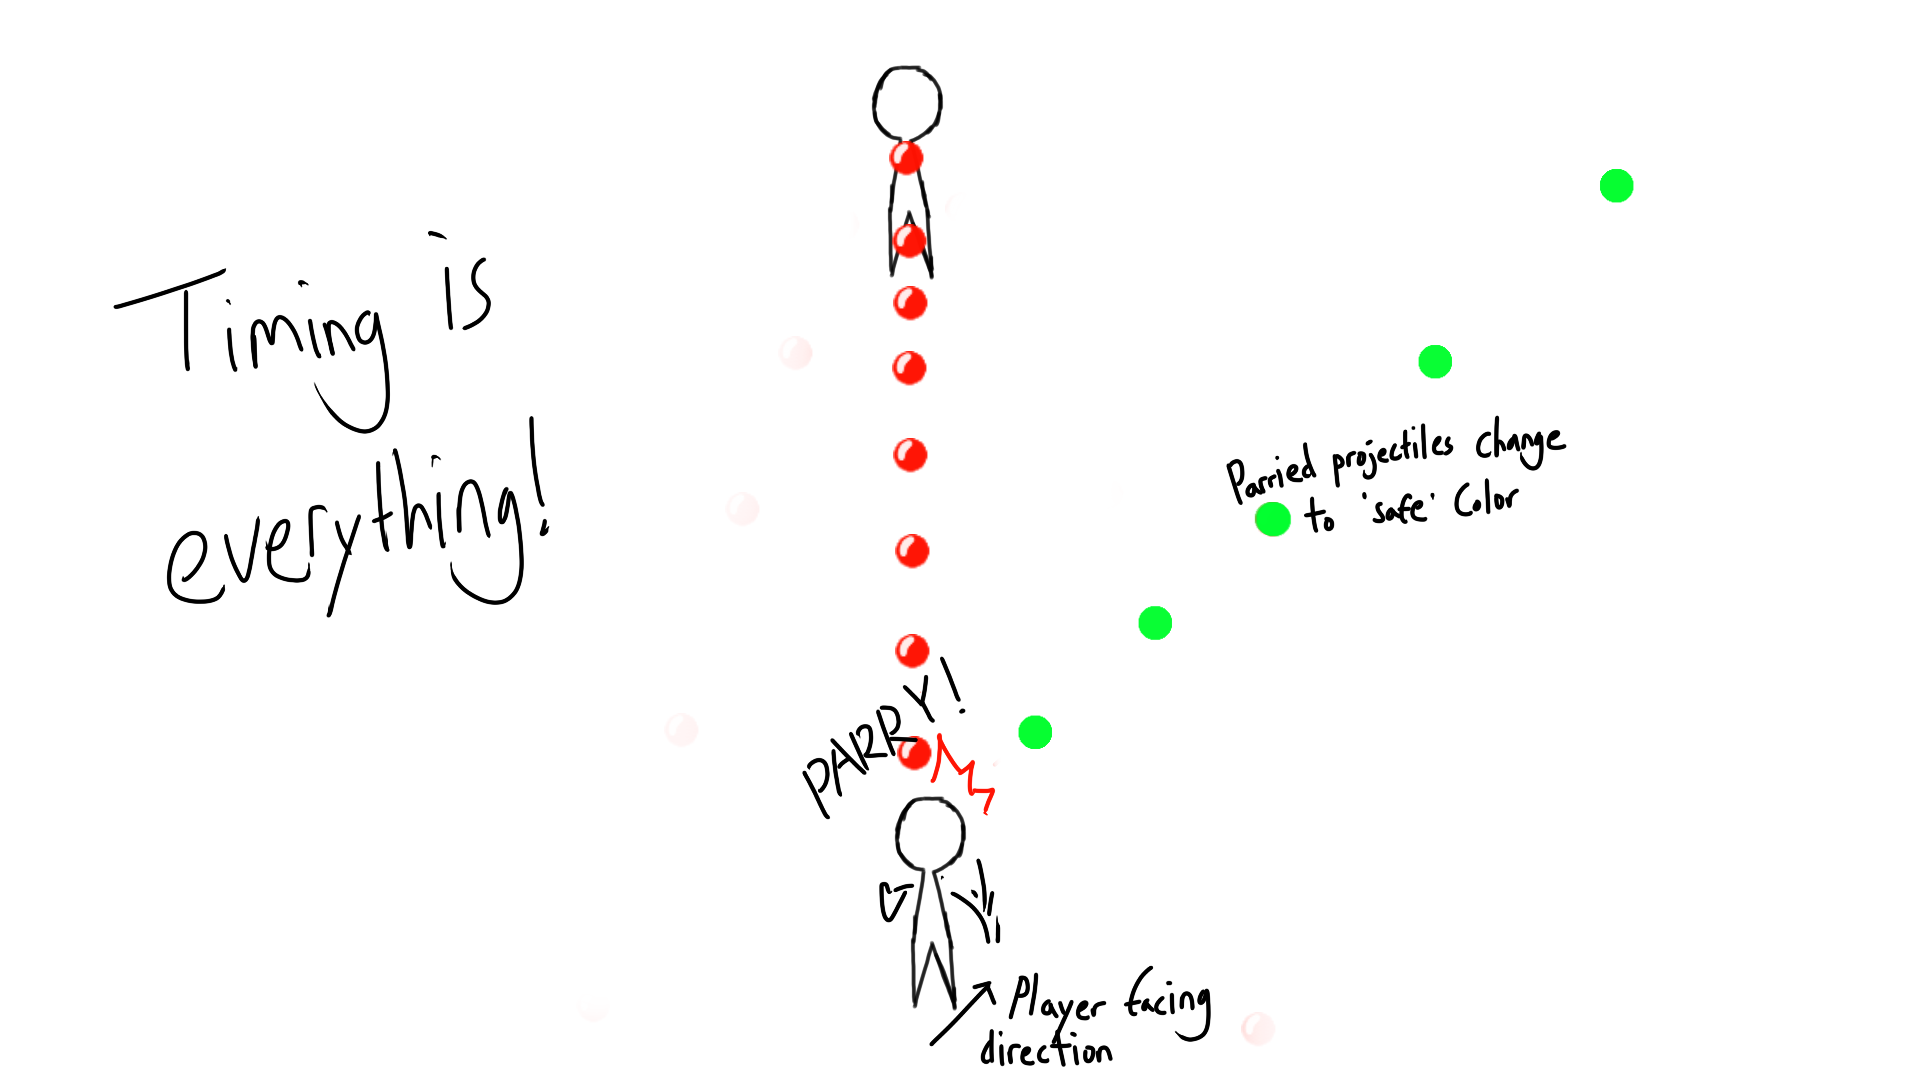 Timing is
everything!
Parried projectiles change
to 'safe' Color
PARRY!
Player facing
direction